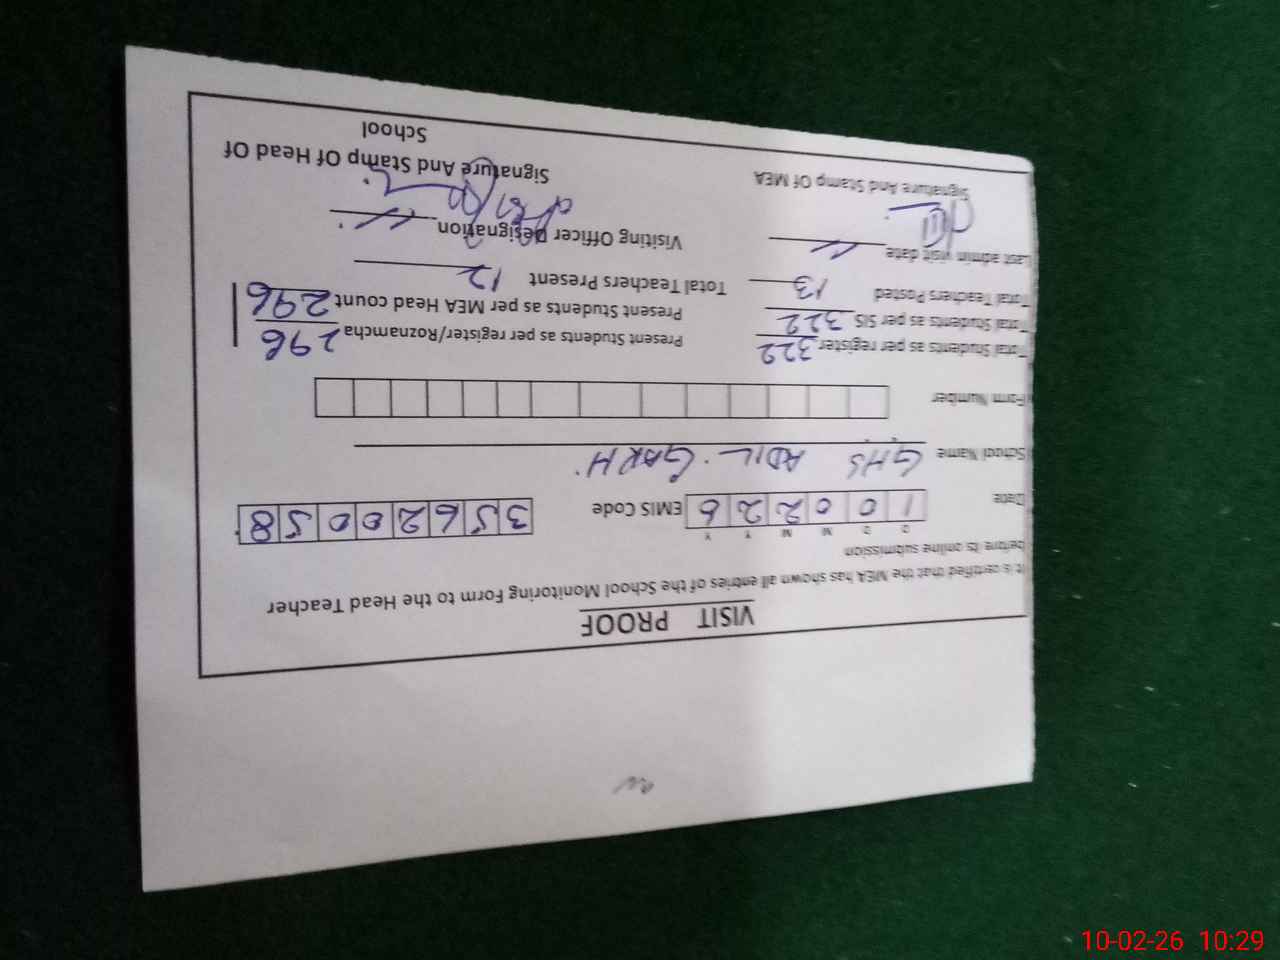 VISIT PROOF
It is certified that the MEA has shown all entries of the School Monitoring Form to the Head Teacher
before its online submission
D D M M Y Y
Date 1 0 0 2 2 6 EMIS Code 3 5 6 2 0 0 5 8
School Name GHS ADIL GARH
Form Number
Total Students as per register 322 Present Students as per register/Roznamcha 296
Total Students as per SIS 322 Present Students as per MEA Head count 296
Total Teachers Posted 13 Total Teachers Present 12
Last admin visit date Visiting Officer Designation
Signature And Stamp Of MEA Signature And Stamp Of Head Of
School
10-02-26 10:29